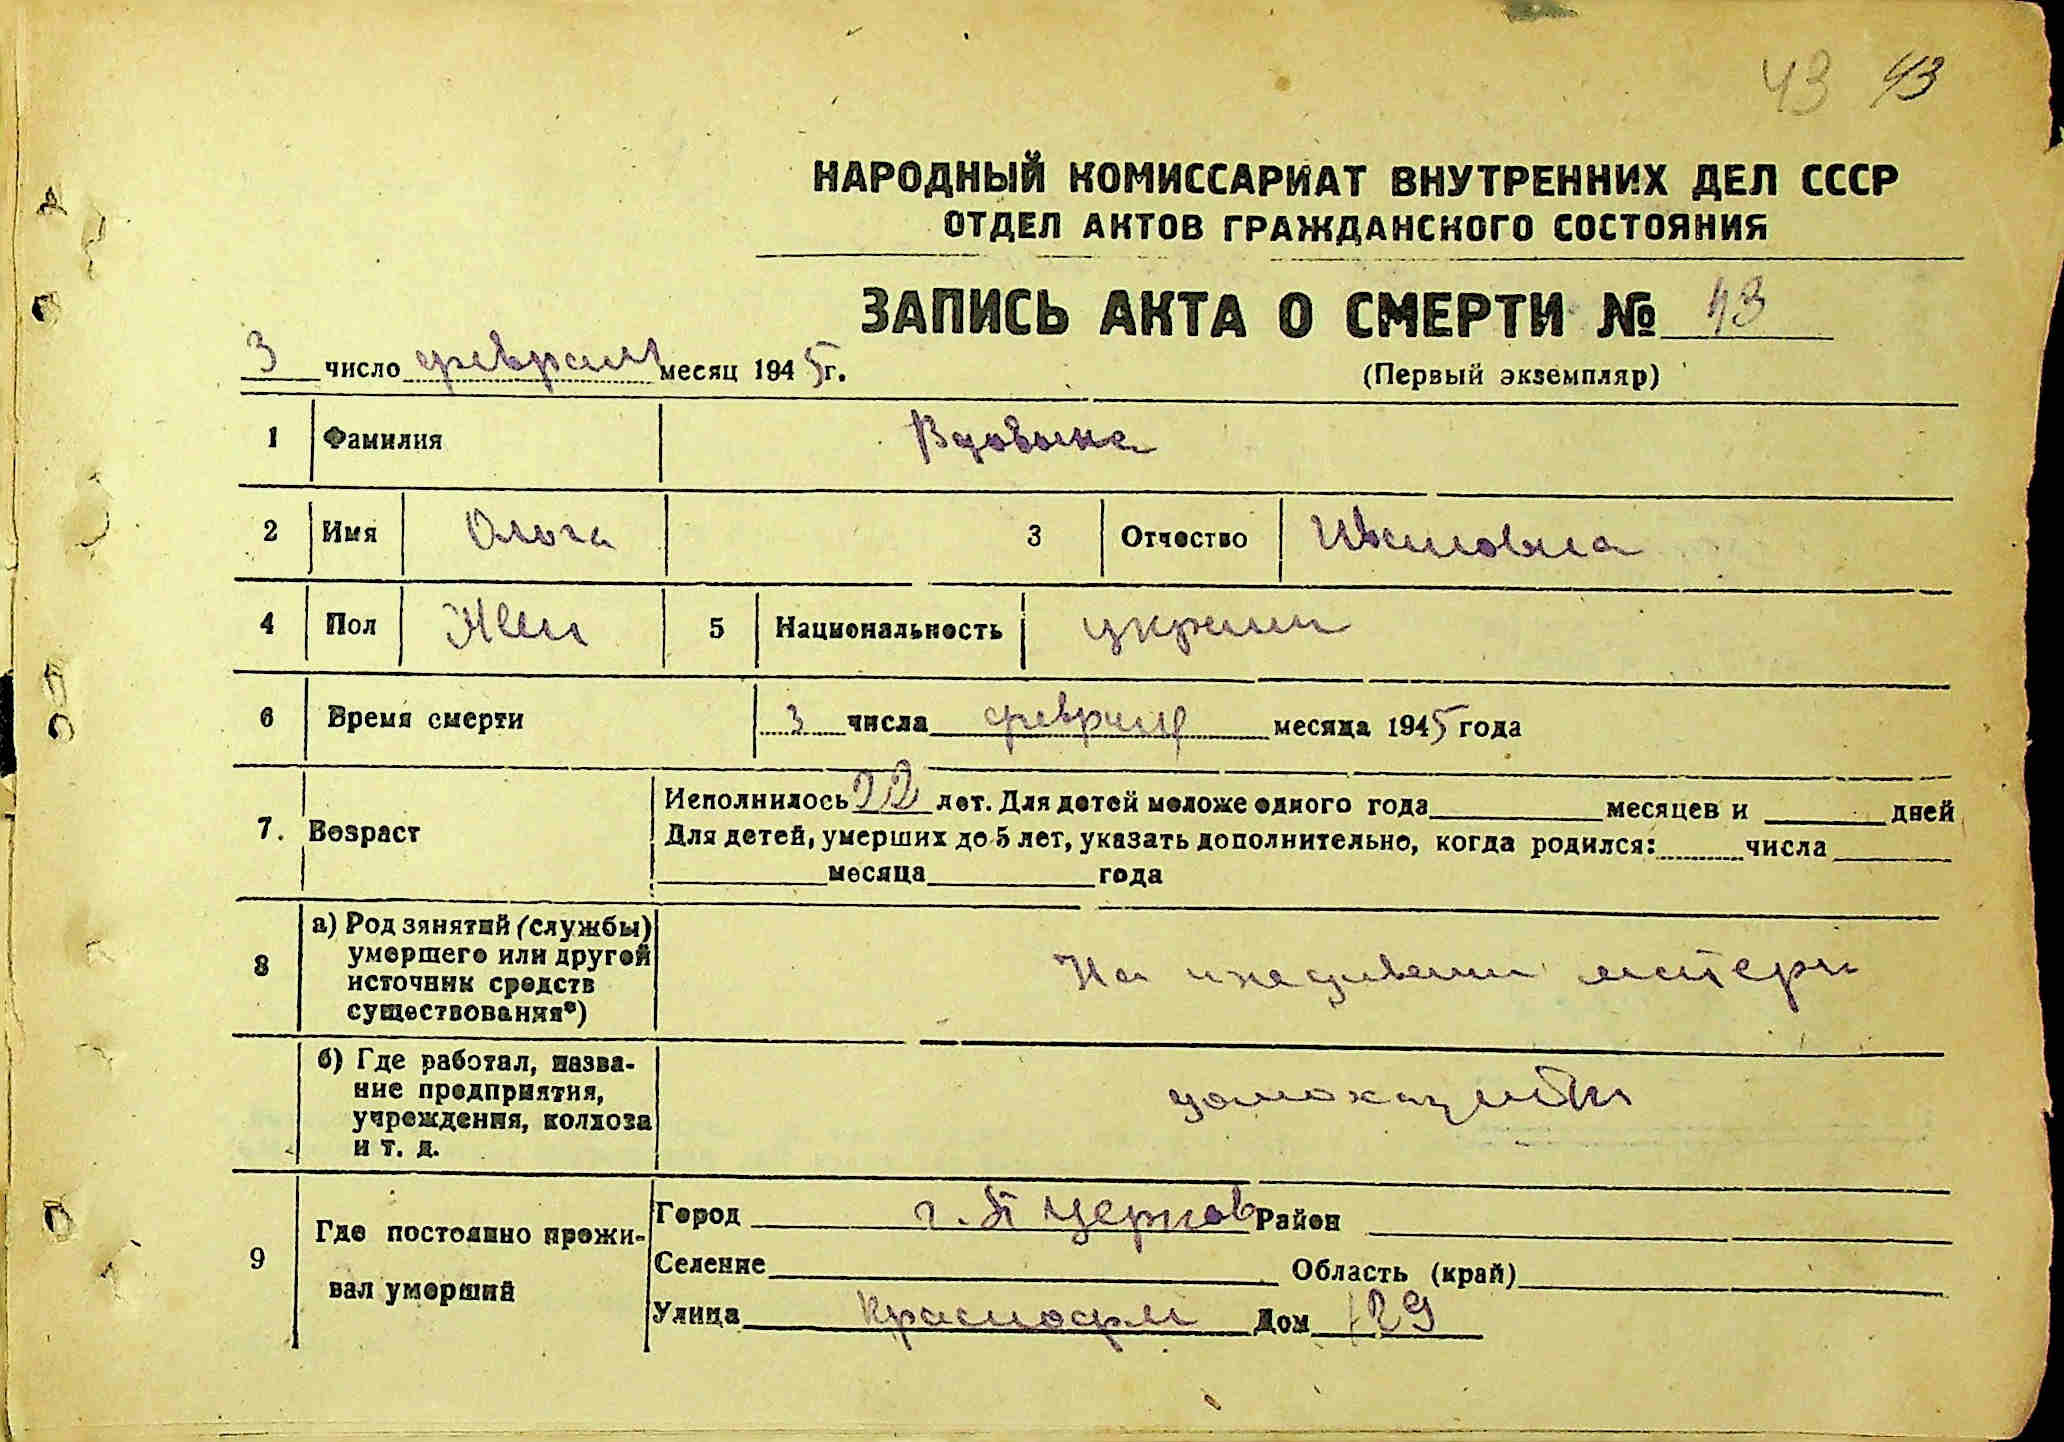 43 43
НАРОДНЫЙ КОМИССАРИАТ ВНУТРЕННИХ ДЕЛ СССР
ОТДЕЛ АКТОВ ГРАЖДАНСКОГО СОСТОЯНИЯ
ЗАПИСЬ АКТА О СМЕРТИ № 43
3 число февраля месяц 1945 г.
(Первый экземпляр)
1 Фамилия Вдовына
2 Имя Ольга 3 Отчество Ивановна
4 Пол Жен 5 Национальность украин
6 Время смерти 3 числа февраля месяца 1945 года
7. Возраст Исполнилось 22 лет. Для детей моложе одного года месяцев и дней
Для детей, умерших до 5 лет, указать дополнительно, когда родился: числа
месяца года
8 а) Род занятий (службы) умершего или другой источник средств существования*) На иждивении матери
б) Где работал, название предприятия, учреждения, колхоза и т. д.
9 Где постоянно проживал умерший
Город г. Церков Район
Селение Область (край)
Улица Красноарм Дом 129